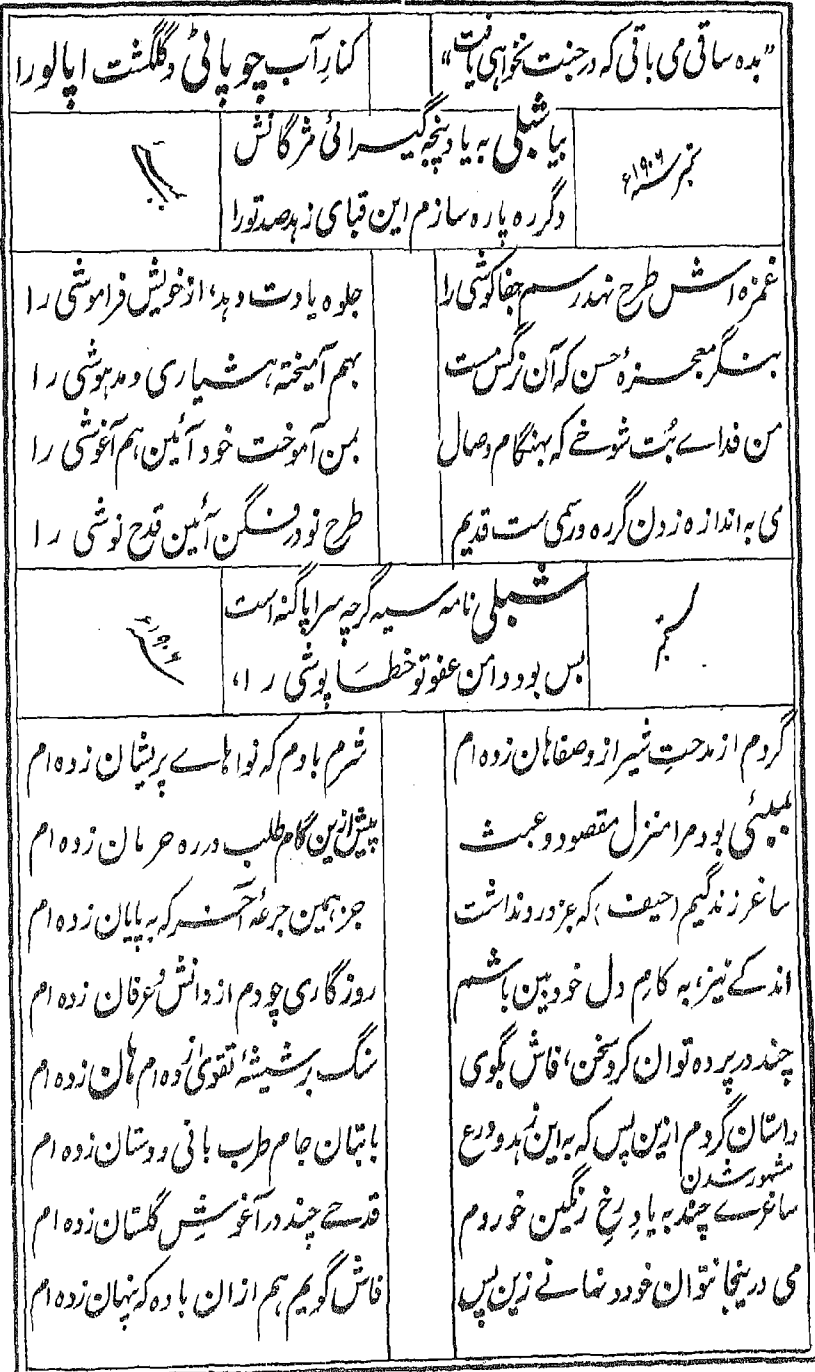 "بده ساقی می باقی که در جنت نخواهی یافت" کنارِ آب چوپاٹی و گلگشت اپالورا
بیا شبلی به یاد پنجه گیرائی مژگانش
ستمبر سنه ۱۹۰۶ء
دگر ره پاره سازم این قبای زهد صد تو را
غمزه اش طرح نهد رسم جفا کوشی را جلوه یادت دهد، از خویش فراموشی را
بنگر معجزهٔ حسن که آن نرگس مست بهم آمیخته هشیاری و مدهوشی را
من فداے بُت شوخے که بهنگام وصال بمن آموخت خود آئین هم آغوشی را
می به اندازه زدن گرره و رسمی ست قدیم طرح نو در فگن آئین قدح نوشی را
شبلی نامه سیه گرچه سراپا گنه است
سنه ۱۹۰۶ء
بس بود دامن عفو تو خطا پوشی را،
گر دم از مدحتِ شیراز و صفاهان زده ام شرم بادم که نوا هاے پریشان زده ام
بمبئی بود مرا منزل مقصود و عبث پیش ازین گام طلب در ره حرمان زده ام
ساغر زندگیم (حیف) که جز درد نداشت جز همین جرعهٔ آخر که به پایان زده ام
اندکے نیز، به کام دل خود بین باشم روزگاری چو دم از دانش و عرفان زده ام
چند در پرده توان کرد سخن، فاش بگوی سنگ بر شیشهٔ تقویٰ زده ام هان زده ام
داستان گردم ازین پس که به این زهد و ورع با بتان جام طرب بانی و دستان زده ام
مشهور شدن
ساغرے چند به یادِ رخِ رنگین خوردم قدحے چند در آغوشِ گلستان زده ام
می درینجا نتوان خورد نهانے زین پس فاش گویم هم ازان باده که پنهان زده ام